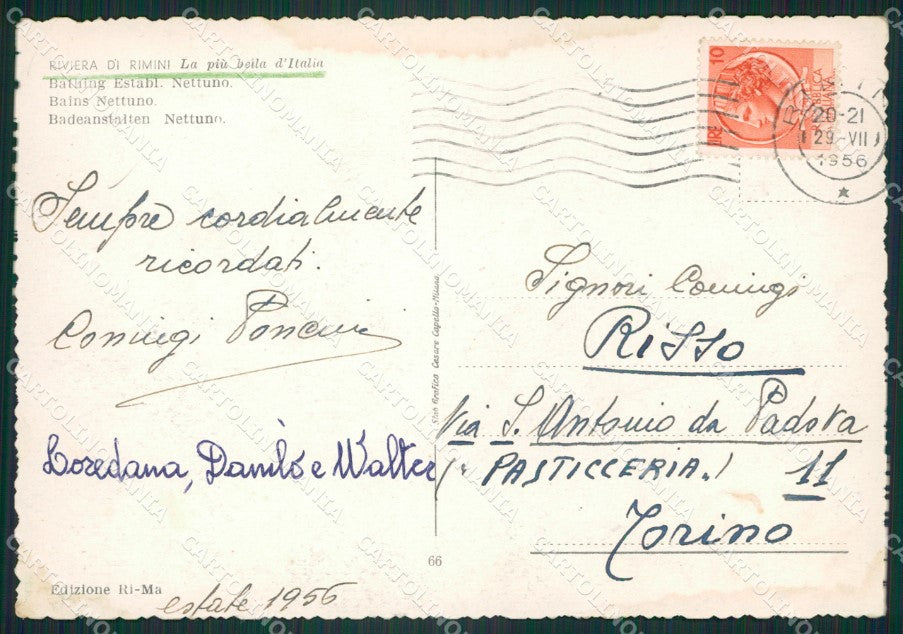 RIVIERA DI RIMINI La più bella d'Italia
Bathing Establ. Nettuno.
Bains Nettuno.
Badeanstalten Nettuno.
Sempre cordialmente
ricordati.
Coniugi
Loredana, Danilo e Walter
Edizione Ri-Ma
estate 1956
66
Cesare Capello-Milano
10
LIRE
20-21
29-VII
1956
Signori Coniugi
Risso
Via S. Antonio da Padova
(PASTICCERIA.) 11
Torino
CARTOLINOMANIA